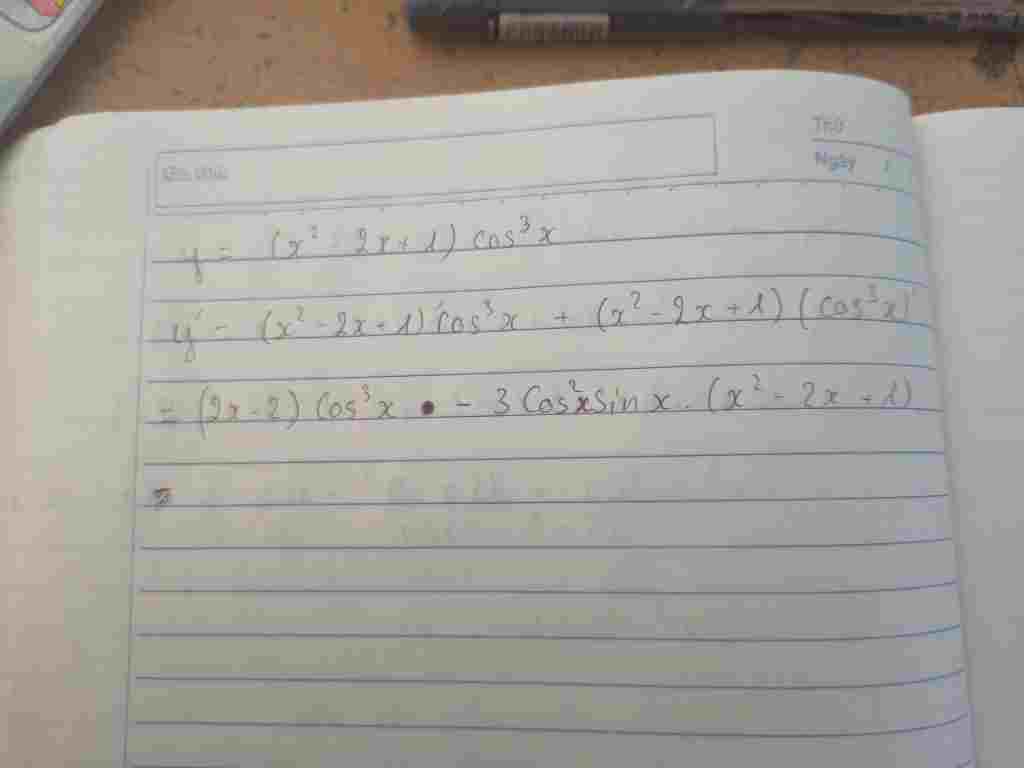 Thứ
Ngày
y = (x² - 2x + 1) cos³x
y' = (x² - 2x + 1)' cos³x + (x² - 2x + 1) (cos³x)'
= (2x - 2) cos³x - 3 cos²x sin x . (x² - 2x + 1)